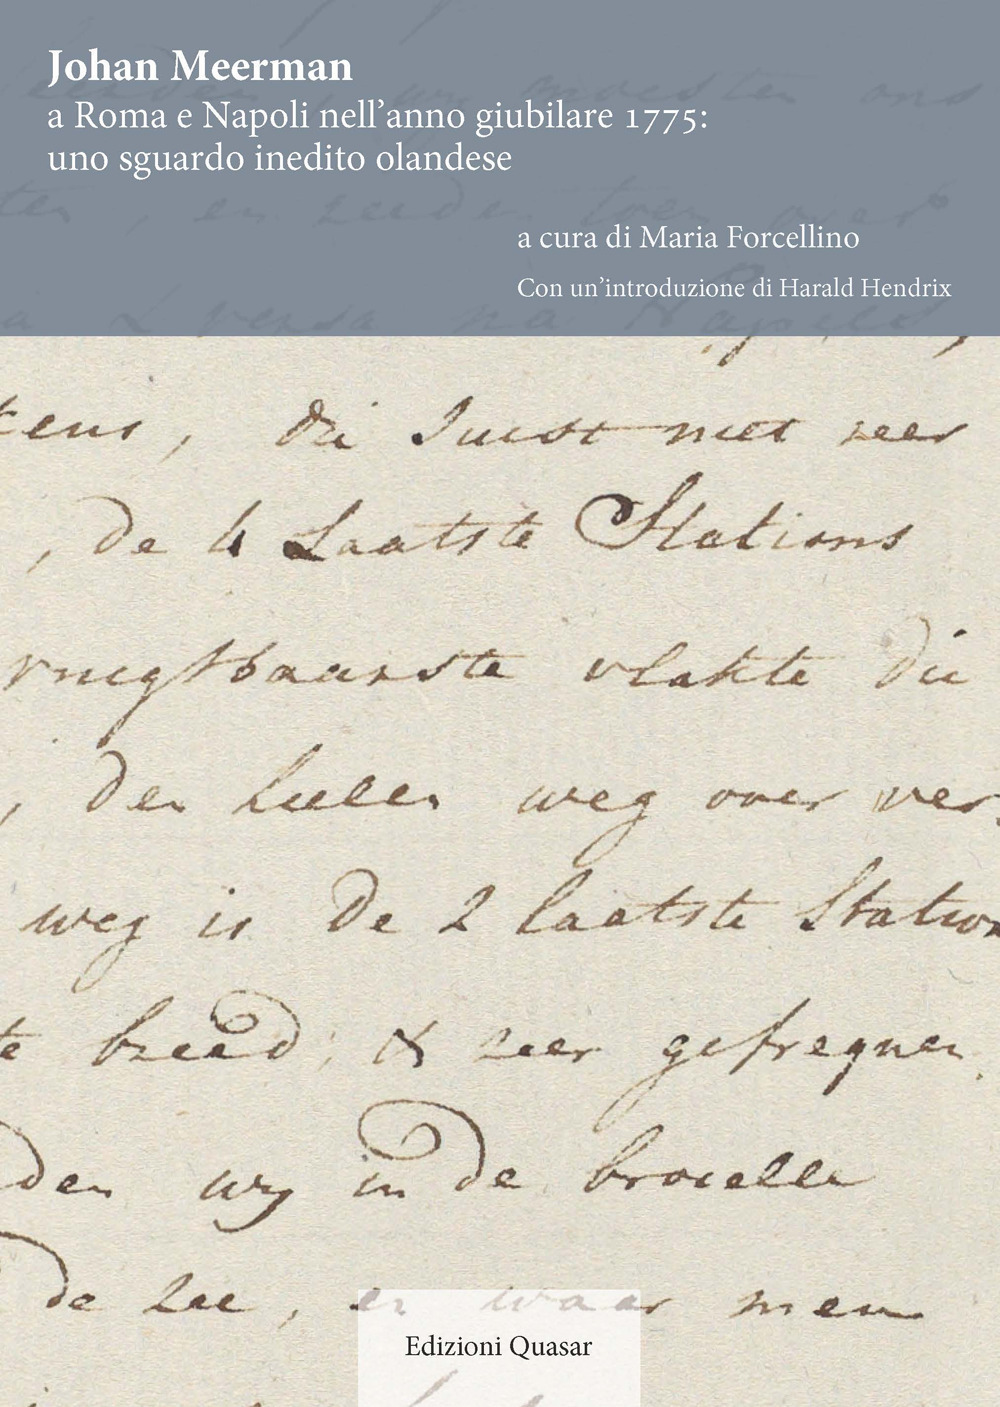 Johan Meerman
a Roma e Napoli nell'anno giubilare 1775:
uno sguardo inedito olandese
a cura di Maria Forcellino
Con un'introduzione di Harald Hendrix
die Juist niet zeer
, de 4 Laatste Stations
vrugtbaarste vlakte die
, den weg over ver
weg is de 2 laatste Station
te breed, & zeer gefrequen
den wy in de
de Zee, en waar men
Edizioni Quasar